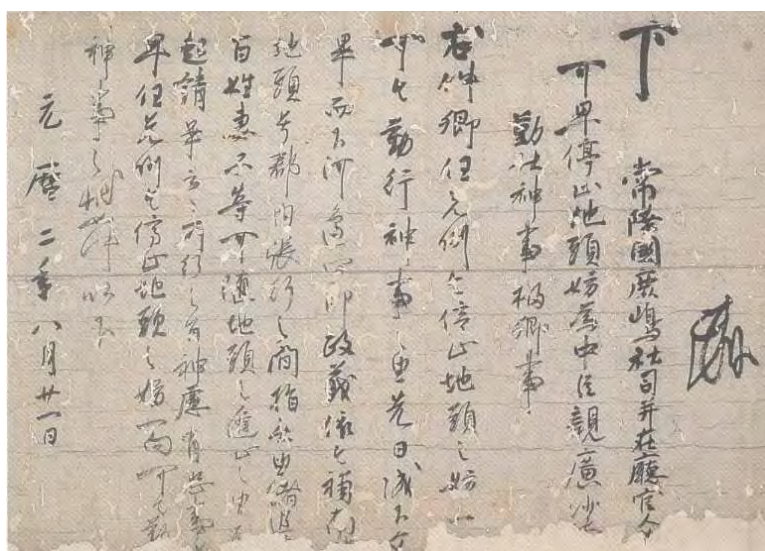 下 常陸國鹿嶋社司并在廳官人
可早停止地頭妨為中臣親廣沙汰
勤仕神事橘郷事
右件郷任先例令停止地頭之妨
可令勤行神事之由先日成下
畢而下河邊四郎政義依令補南
地頭号郡内張行之間
百姓妻子等可随地頭之進止之由
起請畢云々所行之旨神慮有恐
早任先例令停止地頭之妨一向可令勤
神事之状如件以下
元暦二年八月廿一日